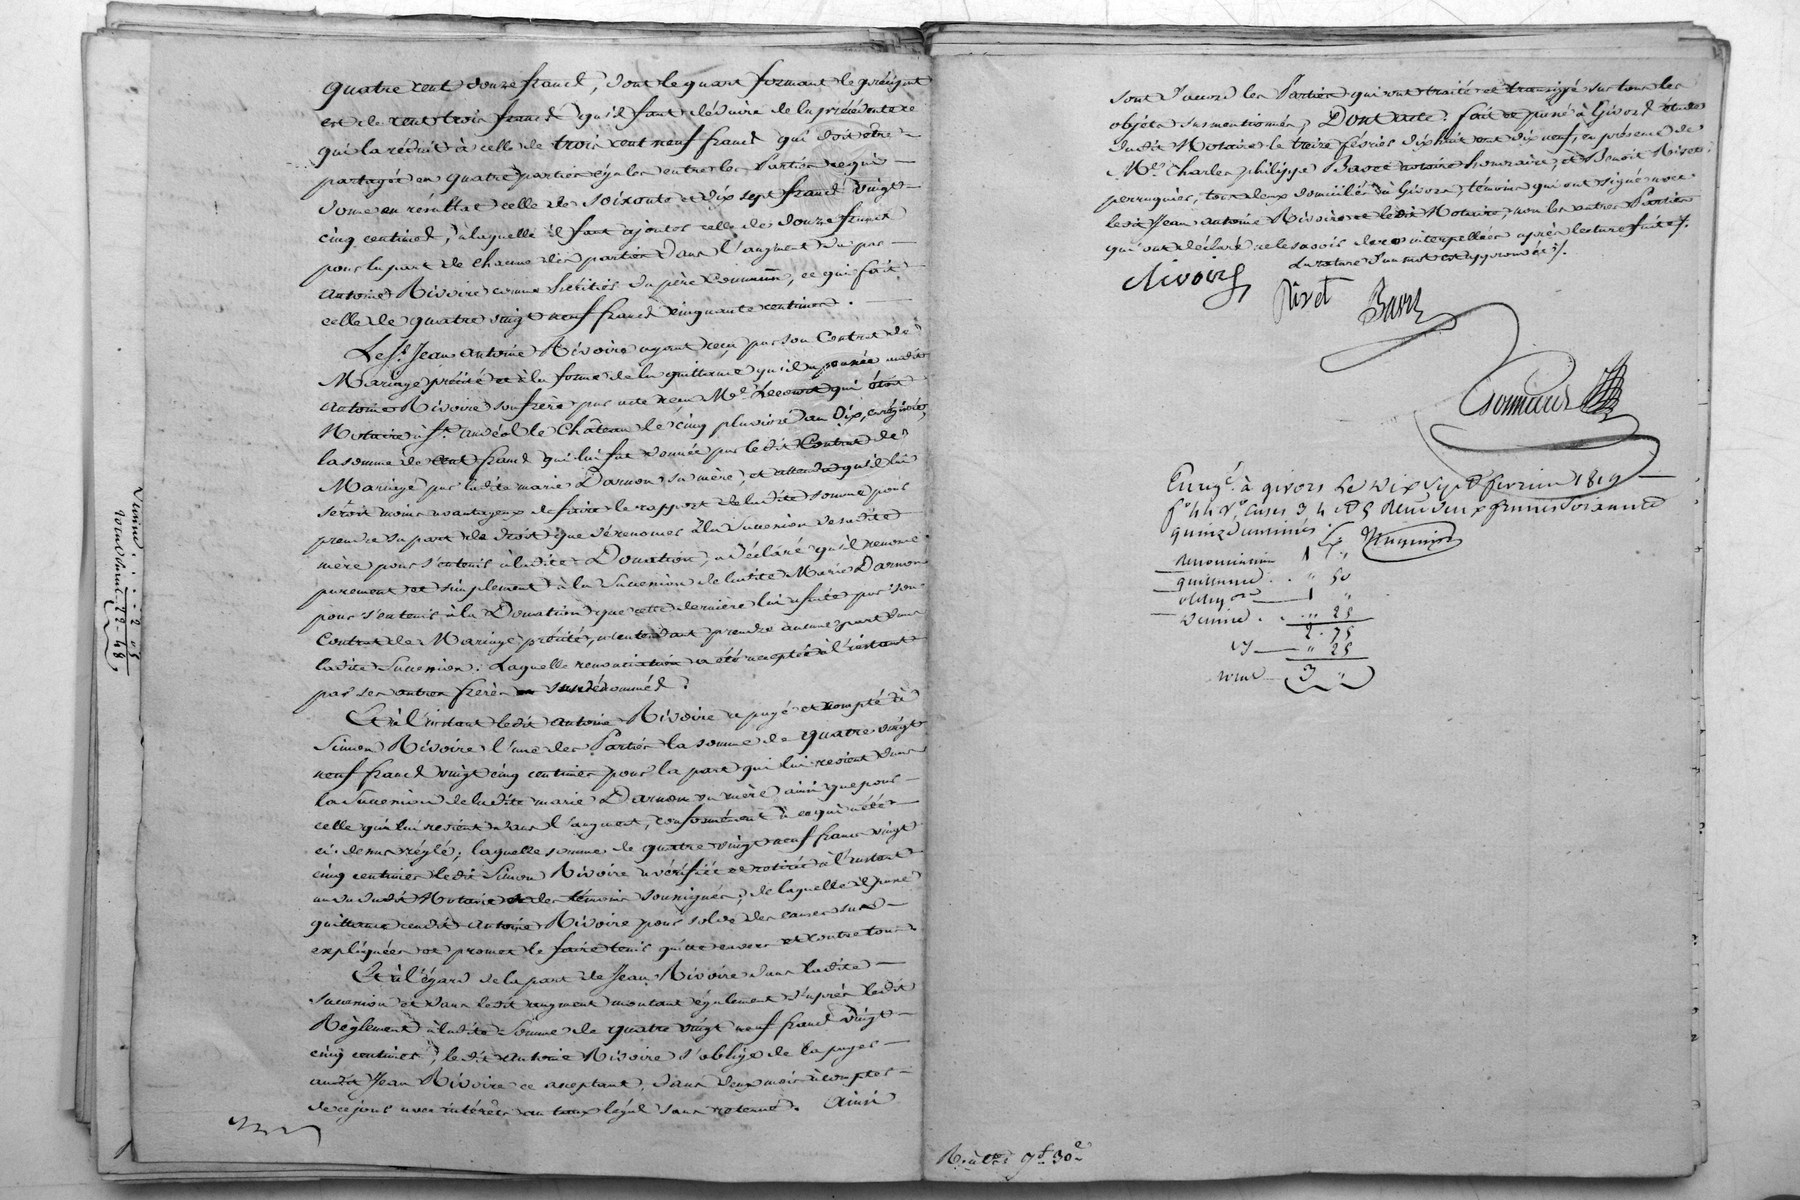 quatre cent douze francs, dont le quart formant le préciput
est de cent trois francs qu'il faut déduire de la précédente ce
qui la réduit à celle de trois cent neuf francs qui doit être
partagée en quatre parties égales entre les Parties ce qui
donne en résultat celle de soixante et dix sept francs vingt
cinq centimes, à laquelle il faut ajouter celle de douze francs
pour la part de chacune des parties dans l'augment du par
Antoine Rivoire comme héritier du père commun, ce qui fait
celle de quatre vingt neuf francs cinquante centimes.
Le Sr. Jean Antoine Rivoire ayant reçu par son Contrat de
Mariage précité et à la forme de la quittance qu'il a passée audit
Antoine Rivoire son frère par acte reçu Me. qui étoit
Notaire à St. andéol le Château le cinq pluviose an Dix, enrégistré
la somme de cent francs qui lui fut donnée par le dit Contrat de
Mariage par ladite marie Darnon sa mère, et attendu qu'il lui
seroit moins avantageux de faire le rapport de ladite somme pour
prendre sa part de droit que de renoncer à la Succession de sadite
mère pour s'en tenir à ladite Donation, a déclaré qu'il renonce
purement et simplement à la Succession de ladite Marie Darnon
pour s'en tenir à la Donation que cette dernière lui a faite par son
Contrat de Mariage précité, n'entendant prendre aucune part dans
ladite Succession. Laquelle renonciation a été acceptée à l'instant
par ses autres frères susdénommés.
Et à l'instant ledit Antoine Rivoire a payé et compté à
Simon Rivoire l'une des Parties la somme de quatre vingt
neuf francs vingt cinq centimes pour la part qui lui revient dans
la Succession de ladite marie Darnon sa mère ainsi que pour
celle qui lui revient dans l'augment, conformément à ce qui a été
ci-dessus réglé; laquelle somme de quatre vingt neuf francs vingt
cinq centimes ledit Simon Rivoire a vérifiée et retirée à l'instant
au vu dudit Notaire et des témoins soussignés; de laquelle il passe
quittance audit Antoine Rivoire pour solde des causes sus
expliquées et promet le faire tenir quitte envers et contre tous.
Et à l'égard de la part de Jean Rivoire dans ladite
succession et dans ledit augment montant également d'après ledit
Règlement à ladite Somme de quatre vingt neuf francs vingt
cinq centimes, ledit Antoine Rivoire s'oblige de la payer
audit Jean Rivoire ce acceptant, dans deux mois à compter
de ce jour avec intérêts au taux légal sans retenue. Ainsi
sont d'accord les Parties qui ont traité et transigé sur tous les
objets susmentionnés, Dont acte. fait et passé à Givors étude
dudit Notaire le treize février dix huit cent dix neuf, en présence de
Me. Charles philippe Bavoz notaire honoraire, et Benoit Rivet
perruquier, tous deux domiciliés à Givors, témoins qui ont signé avec
ledit Jean Antoine Rivoire et ledit Notaire, non les autres Parties
qui ont déclaré ne le savoir de ce interpellées après lecture faite.
La rature d'un mot est approuvée.
Rivoire
Rivet
Enregé. à givors Le Dix Sept fevrier 1819
fo. 44 Vo. Cases 3 4 et 5 Recu deux francs Soixante
quinze Centimes
Renonciation 1 "
quittance . . " 50
oblig on 1 "
Décime . . " 25
2. 75
" 25
total 3 "